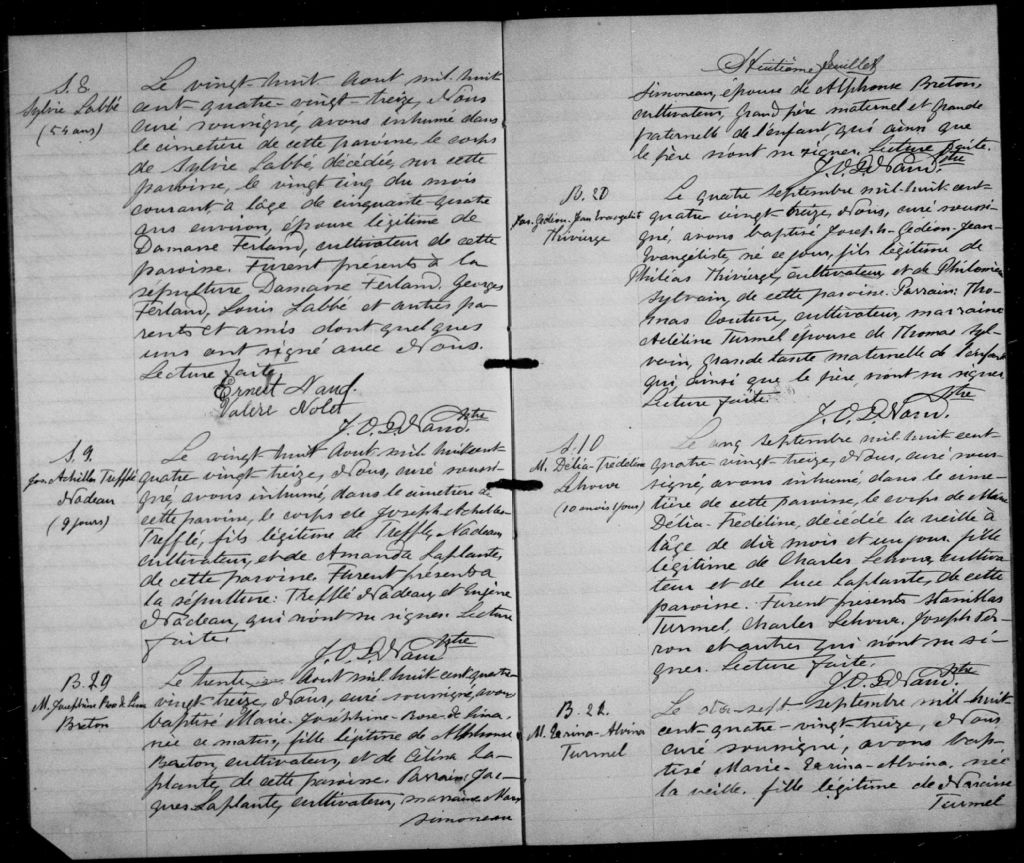 S. 8
Sylvie Labbé
(54 ans)
Le vingt-huit Août mil huit
cent quatre-vingt-treize, Nous
curé soussigné, avons inhumé dans
le cimetière de cette paroisse, le corps
de Sylvie Labbé, décédée, sur cette
paroisse, le vingt cinq du mois
courant, à l'âge de cinquante-quatre
ans environ, épouse légitime de
Damasse Ferland, cultivateur de cette
paroisse. Furent présents à la
sépulture Damasse Ferland, Georges
Ferland, Louis Labbé et autres pa-
rents et amis dont quelques
uns ont signé avec Nous.
Lecture faite
Ernest Naud.
Valère Nolet
J. O. D. Naud. Ptre
S. 9.
Jos. Achillas Trefflé
Nadeau
(9 jours)
Le vingt huit Août mil huit cent
quatre vingt-treize, Nous, curé soussi-
gné, avons inhumé, dans le cimetière de
cette paroisse, le corps de Joseph Achillas
Trefflé, fils légitime de Trefflé Nadeau,
cultivateur, et de Amanda Laplante,
de cette paroisse. Furent présents à
la sépulture: Trefflé Nadeau, et Eugène
Nadeau, qui n'ont su signer. Lecture
faite.
J. O. D. Naud Ptre
B. 19
M. Josephine Rose de Lima
Breton
Le trente Août mil huit cent quatre
vingt-treize, Nous, curé soussigné, avons
baptisé Marie Joséphine-Rose-de-Lima,
née ce matin, fille légitime de Alphonse
Breton, cultivateur, et de Célina La-
plante, de cette paroisse. Parrain: Jac-
ques Laplante, cultivateur, marraine Marie
Simoneau
Huitième feuillet
Simoneau, épouse de Alphonse Breton,
cultivateur, grand père maternel et grande
paternelle de l'enfant, qui ainsi que
le père n'ont su signer. Lecture faite.
J. O. D. Naud. Ptre
B. 20
Jos. Gédéon Jean Evangeliste
Thivierge
Le quatre septembre mil-huit cent-
quatre vingt-treize, Nous, curé soussi-
gné, avons baptisé Joseph-Gédéon-Jean-
Evangéliste, né ce jour, fils légitime de
Philéas Thivierge, cultivateur, et de Philomène
Sylvain, de cette paroisse. Parrain: Tho-
mas Couture, cultivateur, marraine
Adéline Turmel épouse de Thomas Syl-
vain, grande tante maternelle de l'enfant
qui ainsi que le père, n'ont su signer
Lecture faite.
J. O. D. Naud. Ptre
S. 10
M. Délia-Frédéline
Lehoux
(10 mois 1 jour)
Le cinq septembre mil huit cent-
quatre-vingt-treize, Nous, curé sous-
signé, avons inhumé, dans le cime-
tière de cette paroisse, le corps de Marie
Délia-Frédéline, décédée la veille à
l'âge de dix mois et un jour, fille
légitime de Charles Lehoux, cultiva-
teur et de Luce Laplante, de cette
paroisse. Furent présents Stanislas
Turmel, Charles Lehoux, Joseph Per-
ron et autres qui n'ont su si-
gner. Lecture faite.
J. O. D. Naud. Ptre
B. 22.
M. Exrina-Alvina
Turmel
Le dix-sept septembre mil-huit
cent-quatre-vingt-treize, Nous
curé soussigné, avons bap-
tisé Marie-Exrina-Alvina, née
la veille, fille légitime de Narcisse
Turmel